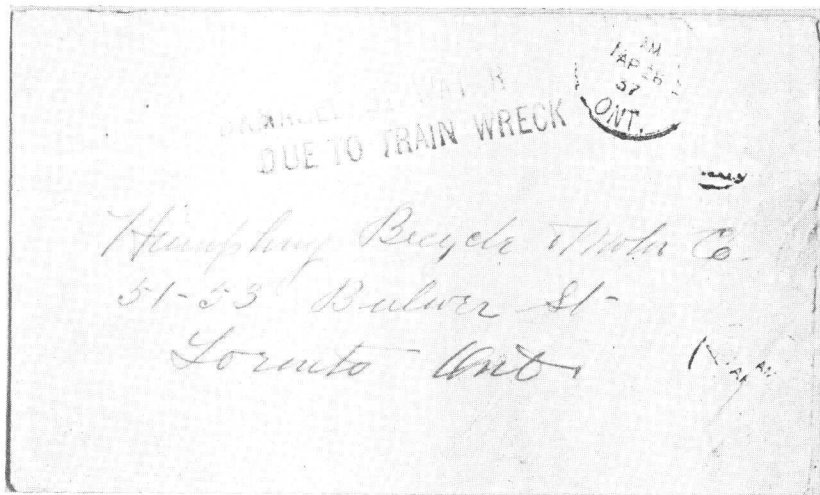 AM
AP 26
37
ONT.
DAMAGED BY WATER
DUE TO TRAIN WRECK
Humphrey Bicycle & Motor Co.
51-53 Bulwer St
Toronto Ont.
AM